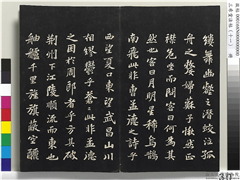 縷舞幽壑之潛蛟泣孤
舟之嫠婦蘇子愀然正
襟危坐而問客曰何為其
然也客曰月明星稀烏鵲
南飛此非曹孟德之詩乎
西望夏口東望武昌山川
相繆鬱乎蒼〻此非孟德
之困於周郎者乎方其破
荊州下江陵順流而東也
舳艫千里旌旗蔽空釃